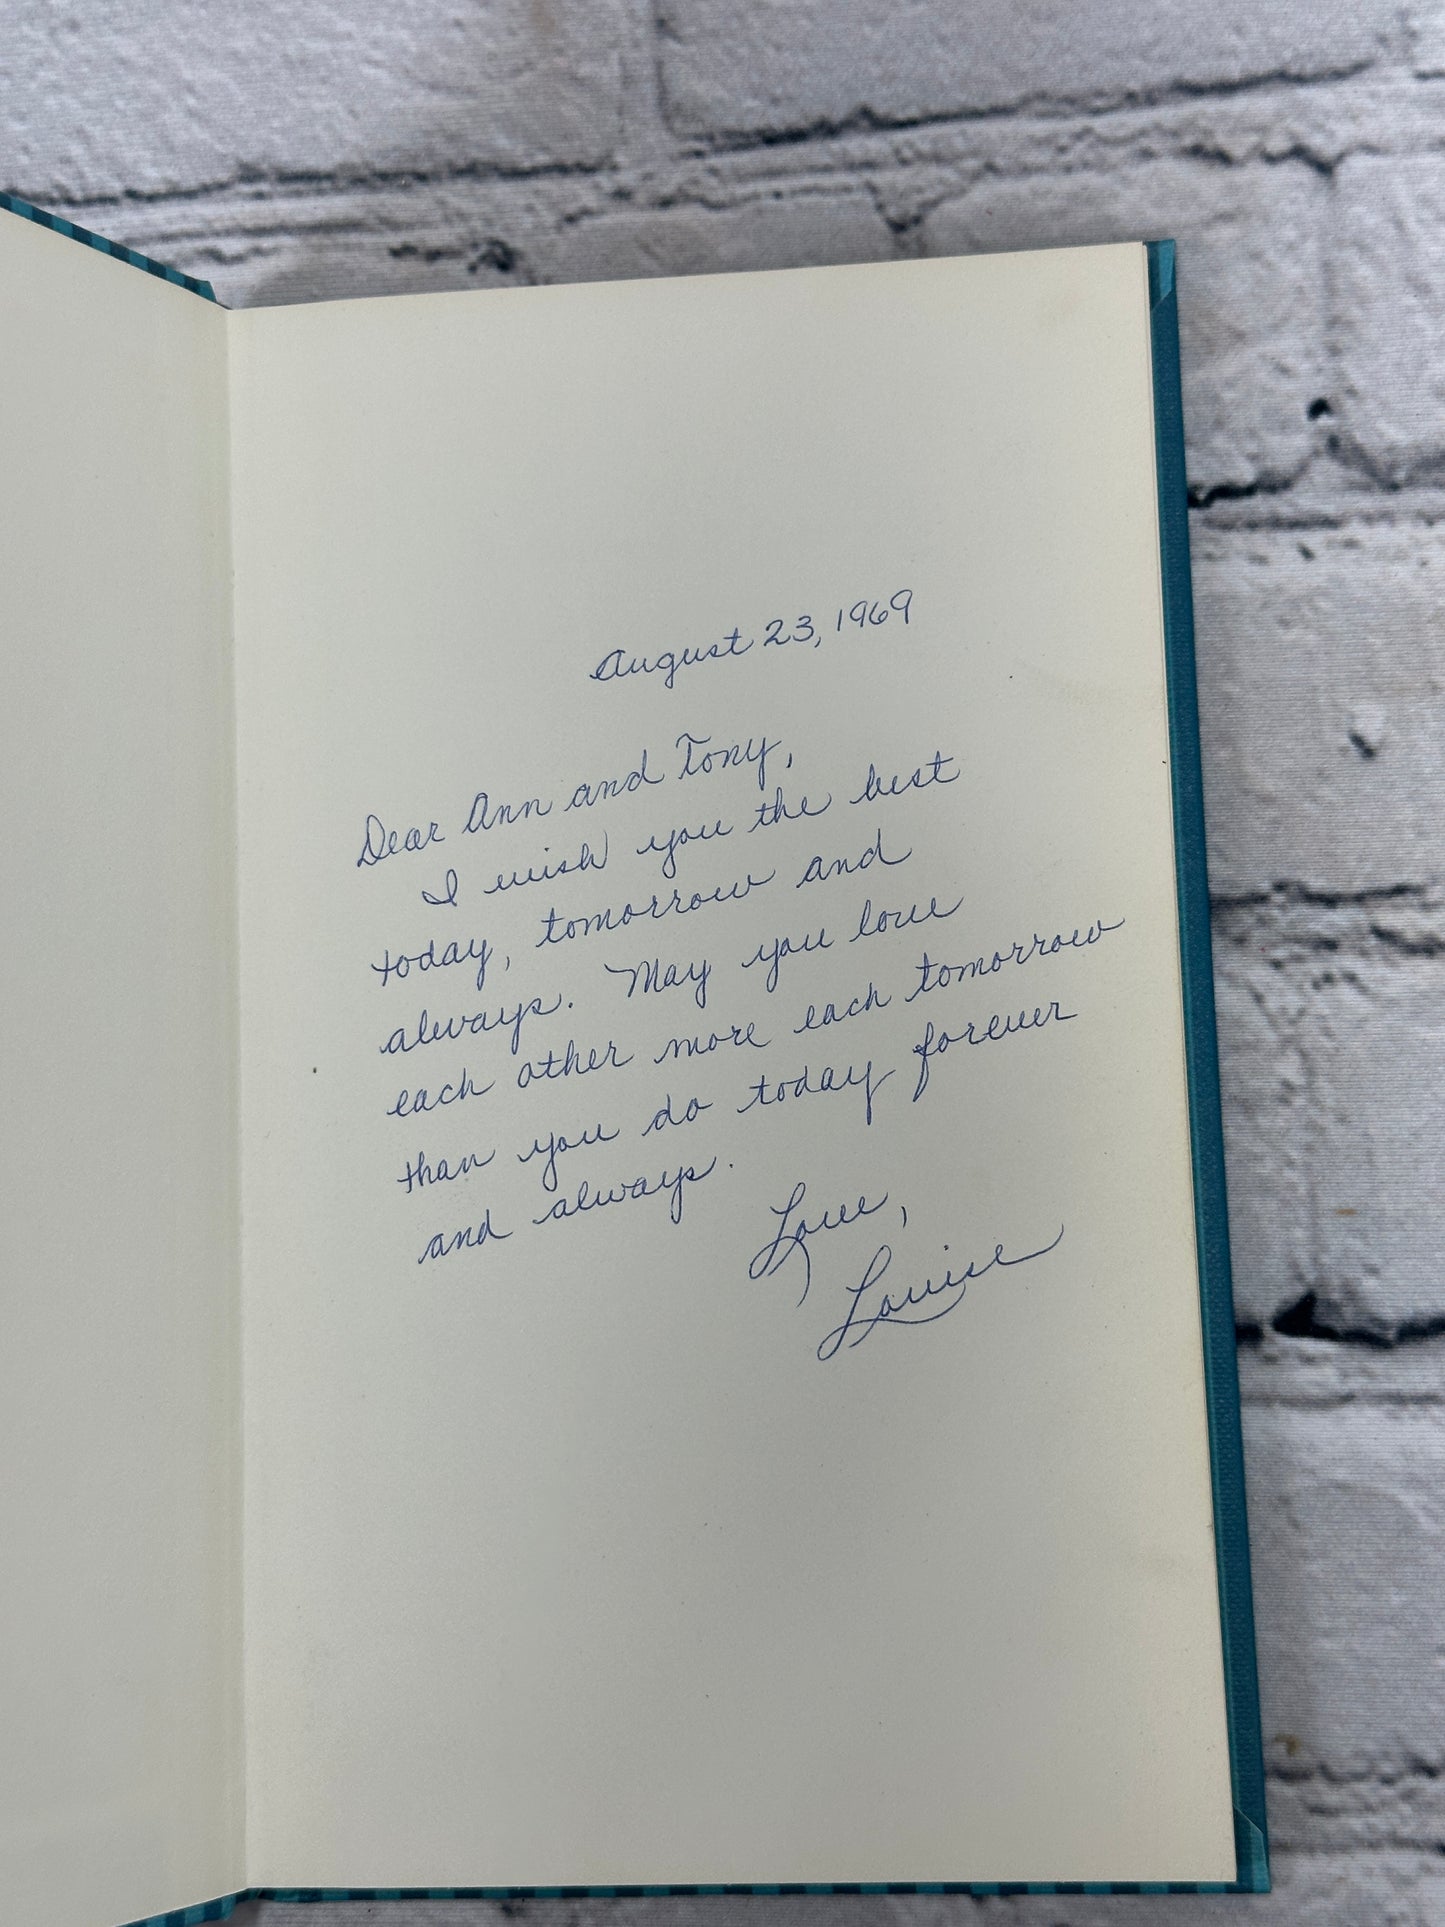 August 23, 1969
Dear Ann and Tony,
I wish you the best
today, tomorrow and
always. May you love
each other more each tomorrow
than you do today forever
and always.
Love,
Louise